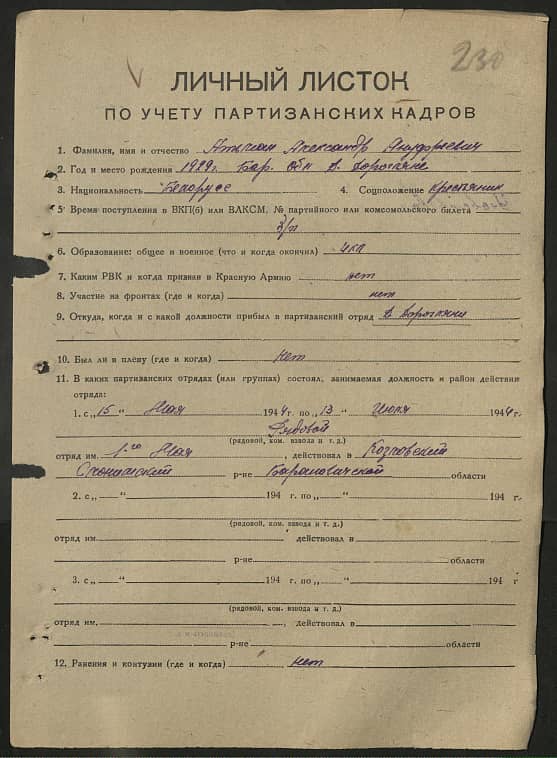 230
ЛИЧНЫЙ ЛИСТОК
ПО УЧЕТУ ПАРТИЗАНСКИХ КАДРОВ
1. Фамилия, имя и отчество Александр
2. Год и место рождения 1929г. Бар. обл д.
3. Национальность Белорусс 4. Соцположение крестьянин
5. Время поступления в ВКП(б) или ВЛКСМ, № партийного или комсомольского билета
б/п
6. Образование: общее и военное (что и когда окончил) 4 кл
7. Каким РВК и когда призван в Красную Армию нет
8. Участие на фронтах (где и когда) нет
9. Откуда, когда и с какой должности прибыл в партизанский отряд д.
10. Был ли в плену (где и когда) Нет
11. В каких партизанских отрядах (или группах) состоял, занимаемая должность и район действия
отряда:
1. с „15 " Мая 1944 г. по „13 " Июля 1944 г.
Рядовой
(рядовой, ком. взвода и т. д.)
отряд им. 1-го Мая, действовал в Козловский
Слонимский р-не Барановичской области
2. с „ " 194 г. по „ " 194 г.
(рядовой, ком. взвода и т. д.)
отряд им. , действовал в
р-не области
3. с „ " 194 г. по „ " 194 г
(рядовой, ком. взвода и т. д.)
отряд им. , действовал в
р-не области
12. Ранения и контузии (где и когда) нет